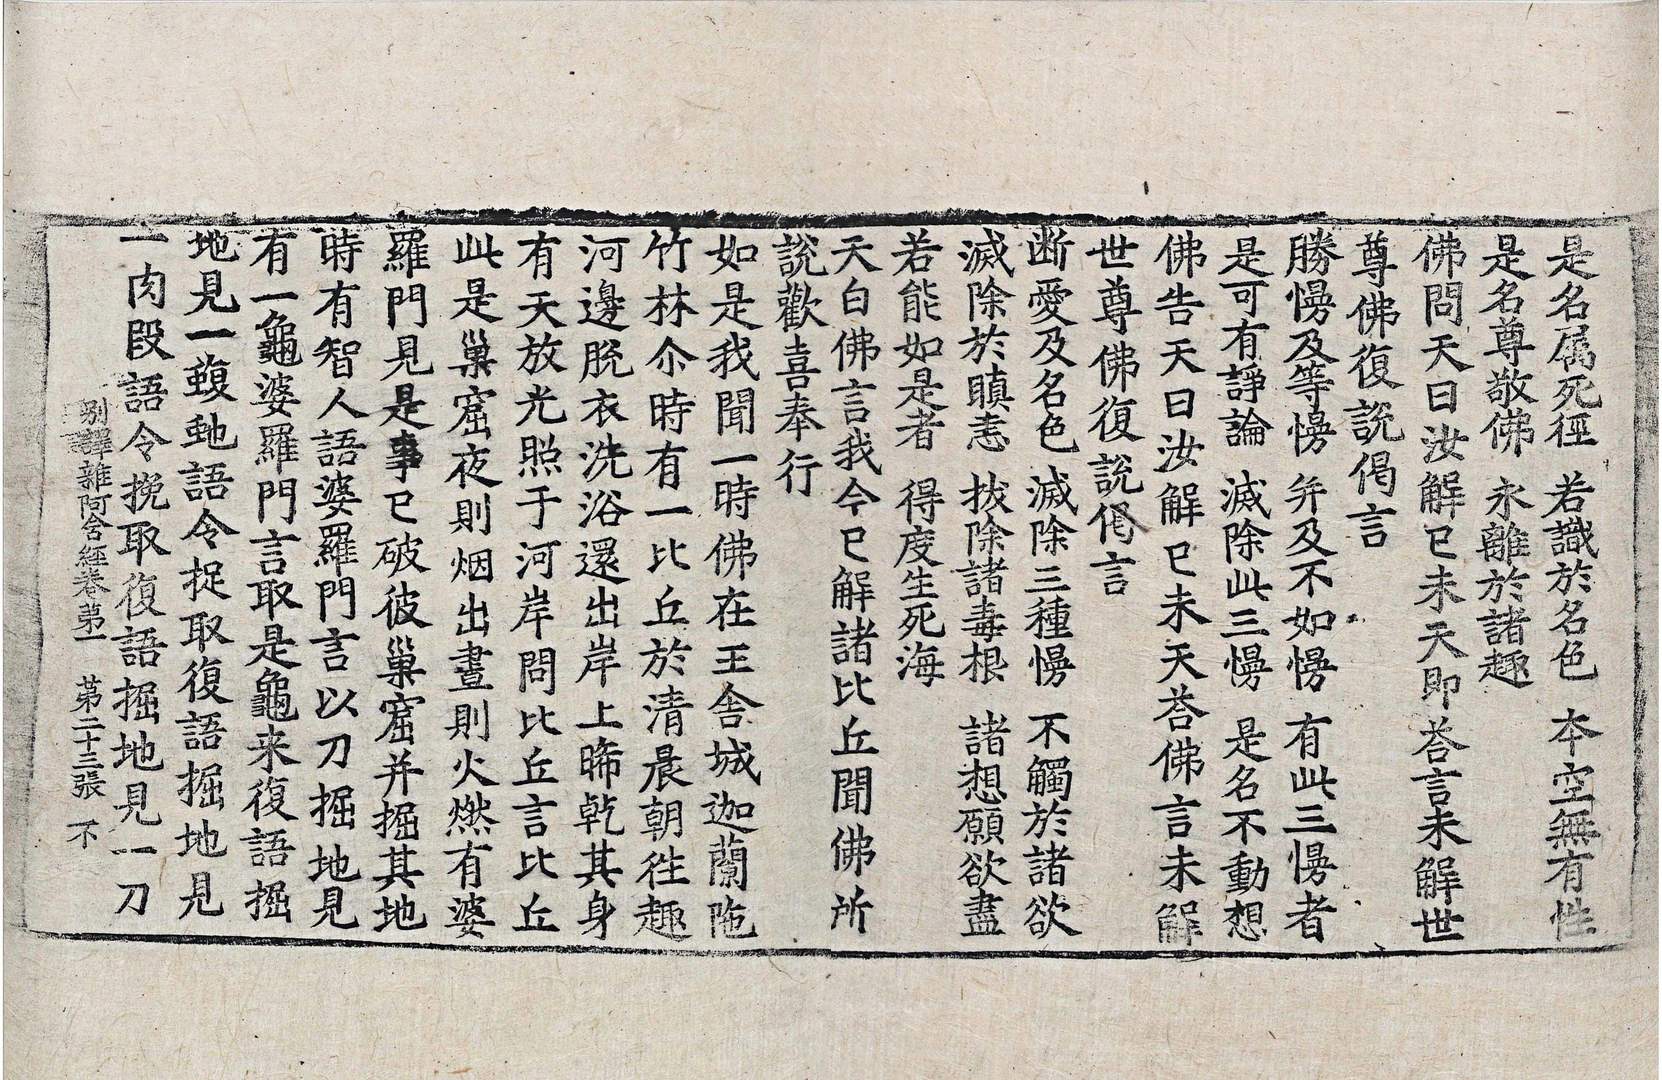 是名屬死徑　若識於名色　本空無有性
是名尊敬佛　永離於諸趣
佛問天曰汝解已未天即荅言未解世
尊佛復說偈言
勝慢及等慢　并及不如慢　有此三慢者
是可有諍論　滅除此三慢　是名不動想
佛告天曰汝解已未天荅佛言未解
世尊佛復說偈言
断愛及名色　滅除三種慢　不觸於諸欲
滅除於瞋恚　拔除諸毒根　諸想願欲盡
若能如是者　得度生死海
天白佛言我今已解諸比丘聞佛所
說歡喜奉行
如是我聞一時佛在王舍城迦蘭陁
竹林尒時有一比丘於清晨朝往趣
河邊脫衣洗浴還出岸上晞乾其身
有天放光照于河岸問比丘言比丘
此是巢窟夜則烟出晝則火燃有婆
羅門見是事已破彼巢窟并掘其地
時有智人語婆羅門言以刀掘地見
有一龜婆羅門言取是龜来復語掘
地見一蝮虵語令捉取復語掘地見
一肉段語令挽取復語掘地見一刀
別譯雜阿含經卷第一　第二十三張　不